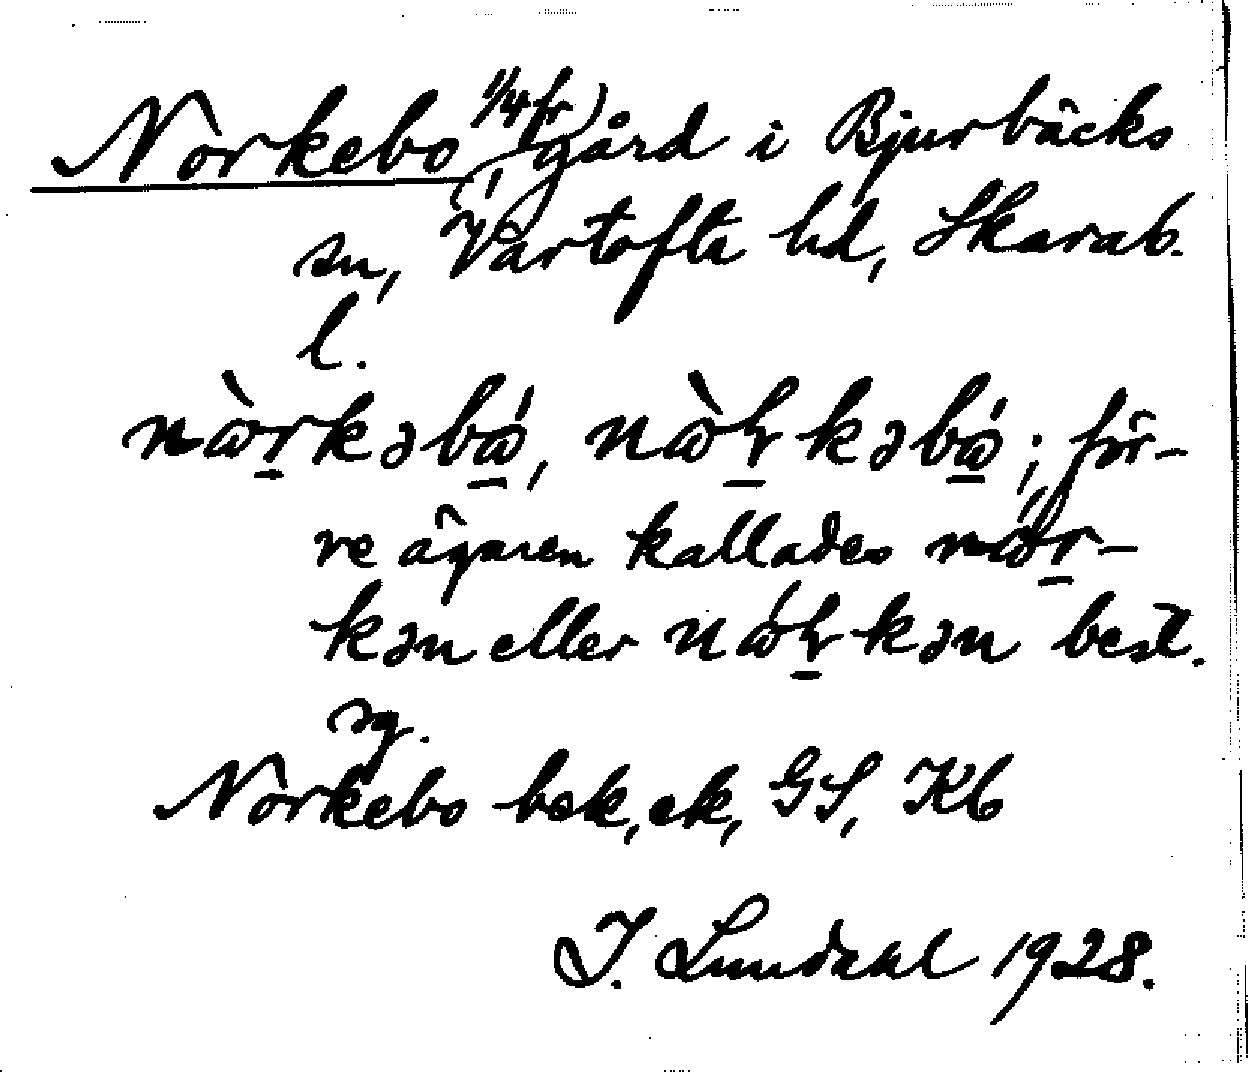 Norkebo, 1/4 fr) gård i Bjurbäcks
sn, Vartofta hd, Skarab.
l.
nὼrkəbώ, nὼɽkəbώ; för-
re ägaren kallades nώr-
kən eller nώɽkən best.
sg.
Norkebo bok, ek, GS, Kb
I. Lundahl 1928.